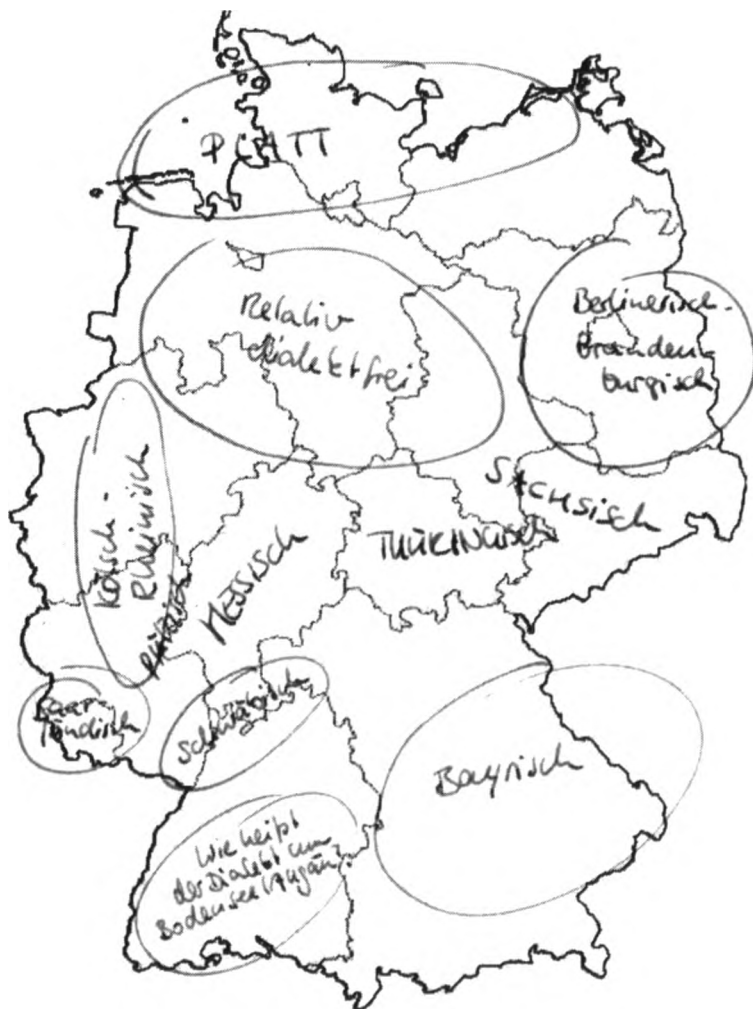 PLATT
Relativ
dialektfrei
Berlinerisch-
Branden-
burgisch
SÄCHSISCH
THÜRINGISCH
HESSISCH
Kölsch-
Rheinisch
PFÄLZISCH
Saar-
ländisch
Schwäbisch
Bayrisch
Wie heißt
der Dialekt um
Bodensee